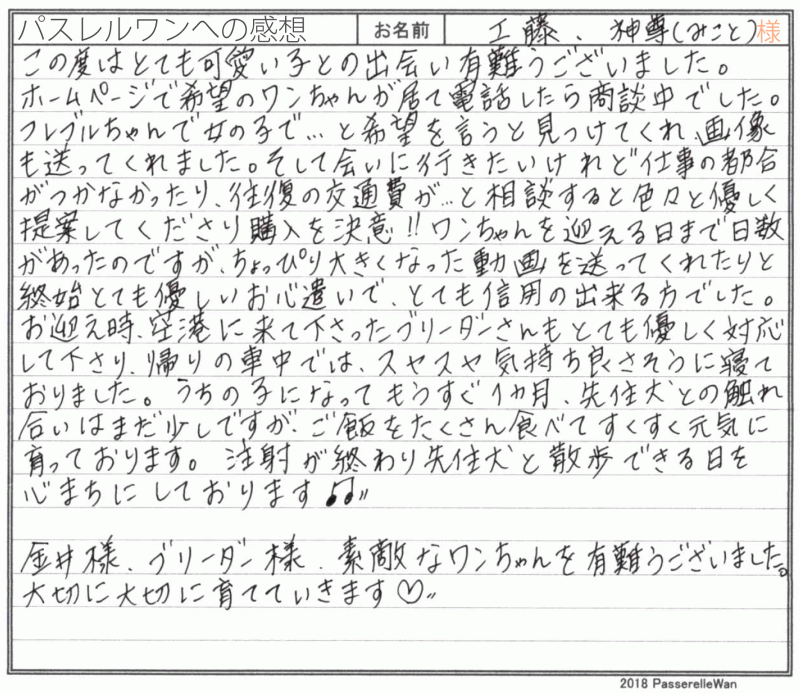 パスレルワンへの感想 お名前 工藤、神尊(みこと)様
この度はとても可愛い子との出会い有難うございました。
ホームページで希望のワンちゃんが居て電話したら商談中でした。
フレブルちゃんで女の子で…と希望を言うと見つけてくれ、画像
も送ってくれました。そして会いに行きたいけれど仕事の都合
がつかなかったり、往復の交通費が…と相談すると色々と優しく
提案してくださり購入を決意!!ワンちゃんを迎える日まで日数
があったのですが、ちょっぴり大きくなった動画を送ってくれたりと
終始とても優しいお心遣いで、とても信用の出来る方でした。
お迎え時、空港に来て下さったブリーダーさんもとても優しく対応
して下さり、帰りの車中では、スヤスヤ気持ち良さそうに寝て
おりました。うちの子になってもうすぐ1ヵ月、先住犬との触れ
合いはまだ少しですが、ご飯をたくさん食べてすくすく元気に
育っております。注射が終わり先住犬と散歩できる日を
心まちにしております♫〃
金井様、ブリーダー様、素敵なワンちゃんを有難うございました。
大切に大切に育てていきます♡〃
2018 PasserelleWan